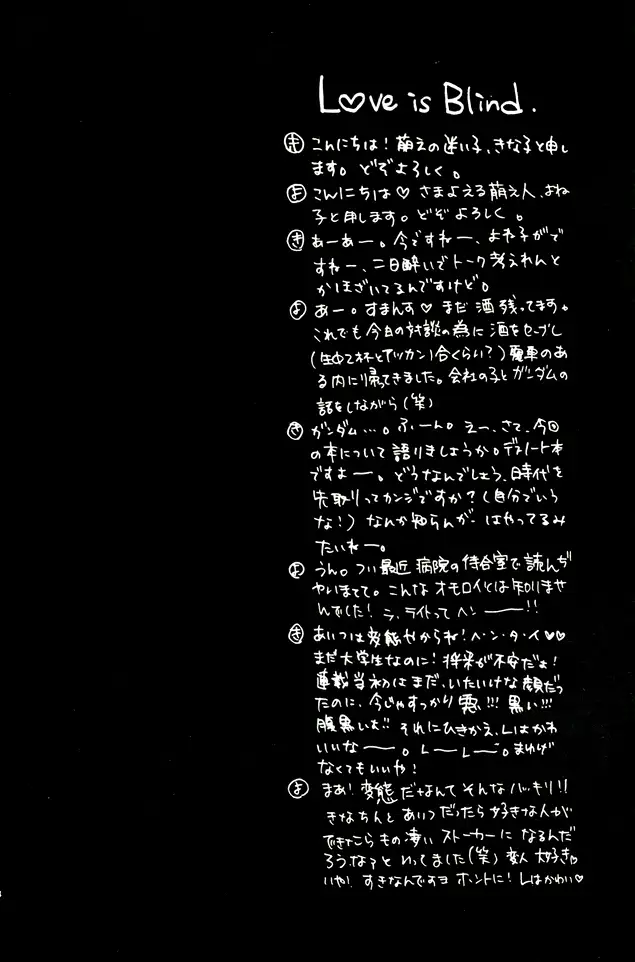 Love is Blind.
き こんにちは!萌えの迷い子、きな子と申し
ます。どぞよろしく。
よ こんにちは♡さまよえる萌え人、よね
子と申します。どぞよろしく。
き あーあー。今ですねー、よね子がで
すねー、二日酔いでトーク考えれんと
かほざいてるんですけど。
よ あー。すまんす♡まだ酒残ってます。
これでも今日の対談の為に酒をセーブし
(生中2杯とアツカン1合くらい?)電車のあ
る内に帰ってきました。会社の子とガンダムの
話をしながら(笑)
き ガンダム…。ふーん。えー、さて、今回
の本について語りましょうか。デスノート本
ですよー。どうなんでしょう、時代を
先取りってカンジですか?(自分でいう
な!)なんか知らんがーはやってるみ
たいねー。
よ うん。つい最近病院の待合室で読んぢ
ゃいまして。こんなオモロイとは知りませ
んでした!ラ、ライトってヘンーー!!
き あいつは変態やからね!ヘ・ン・タ・イ♡♡
まだ大学生なのに!将来が不安だよ!
連載当初はまだ、いたいけな顔だっ
たのに、今じゃすっかり悪い!!!黒い!!!
腹黒いよ!!それにひきかえ、Lはかわ
いいなーー。LーLー。まゆげ
なくてもいいや!
よ まあ!変態だなんてそんなハッキリ!!
きなちんとあいつだったら好きな人が
できたらもの凄いストーカーになるんだ
ろうなっていってました(笑)変人大好き♡
いや!すきなんですヨホントに!Lはかわい♡